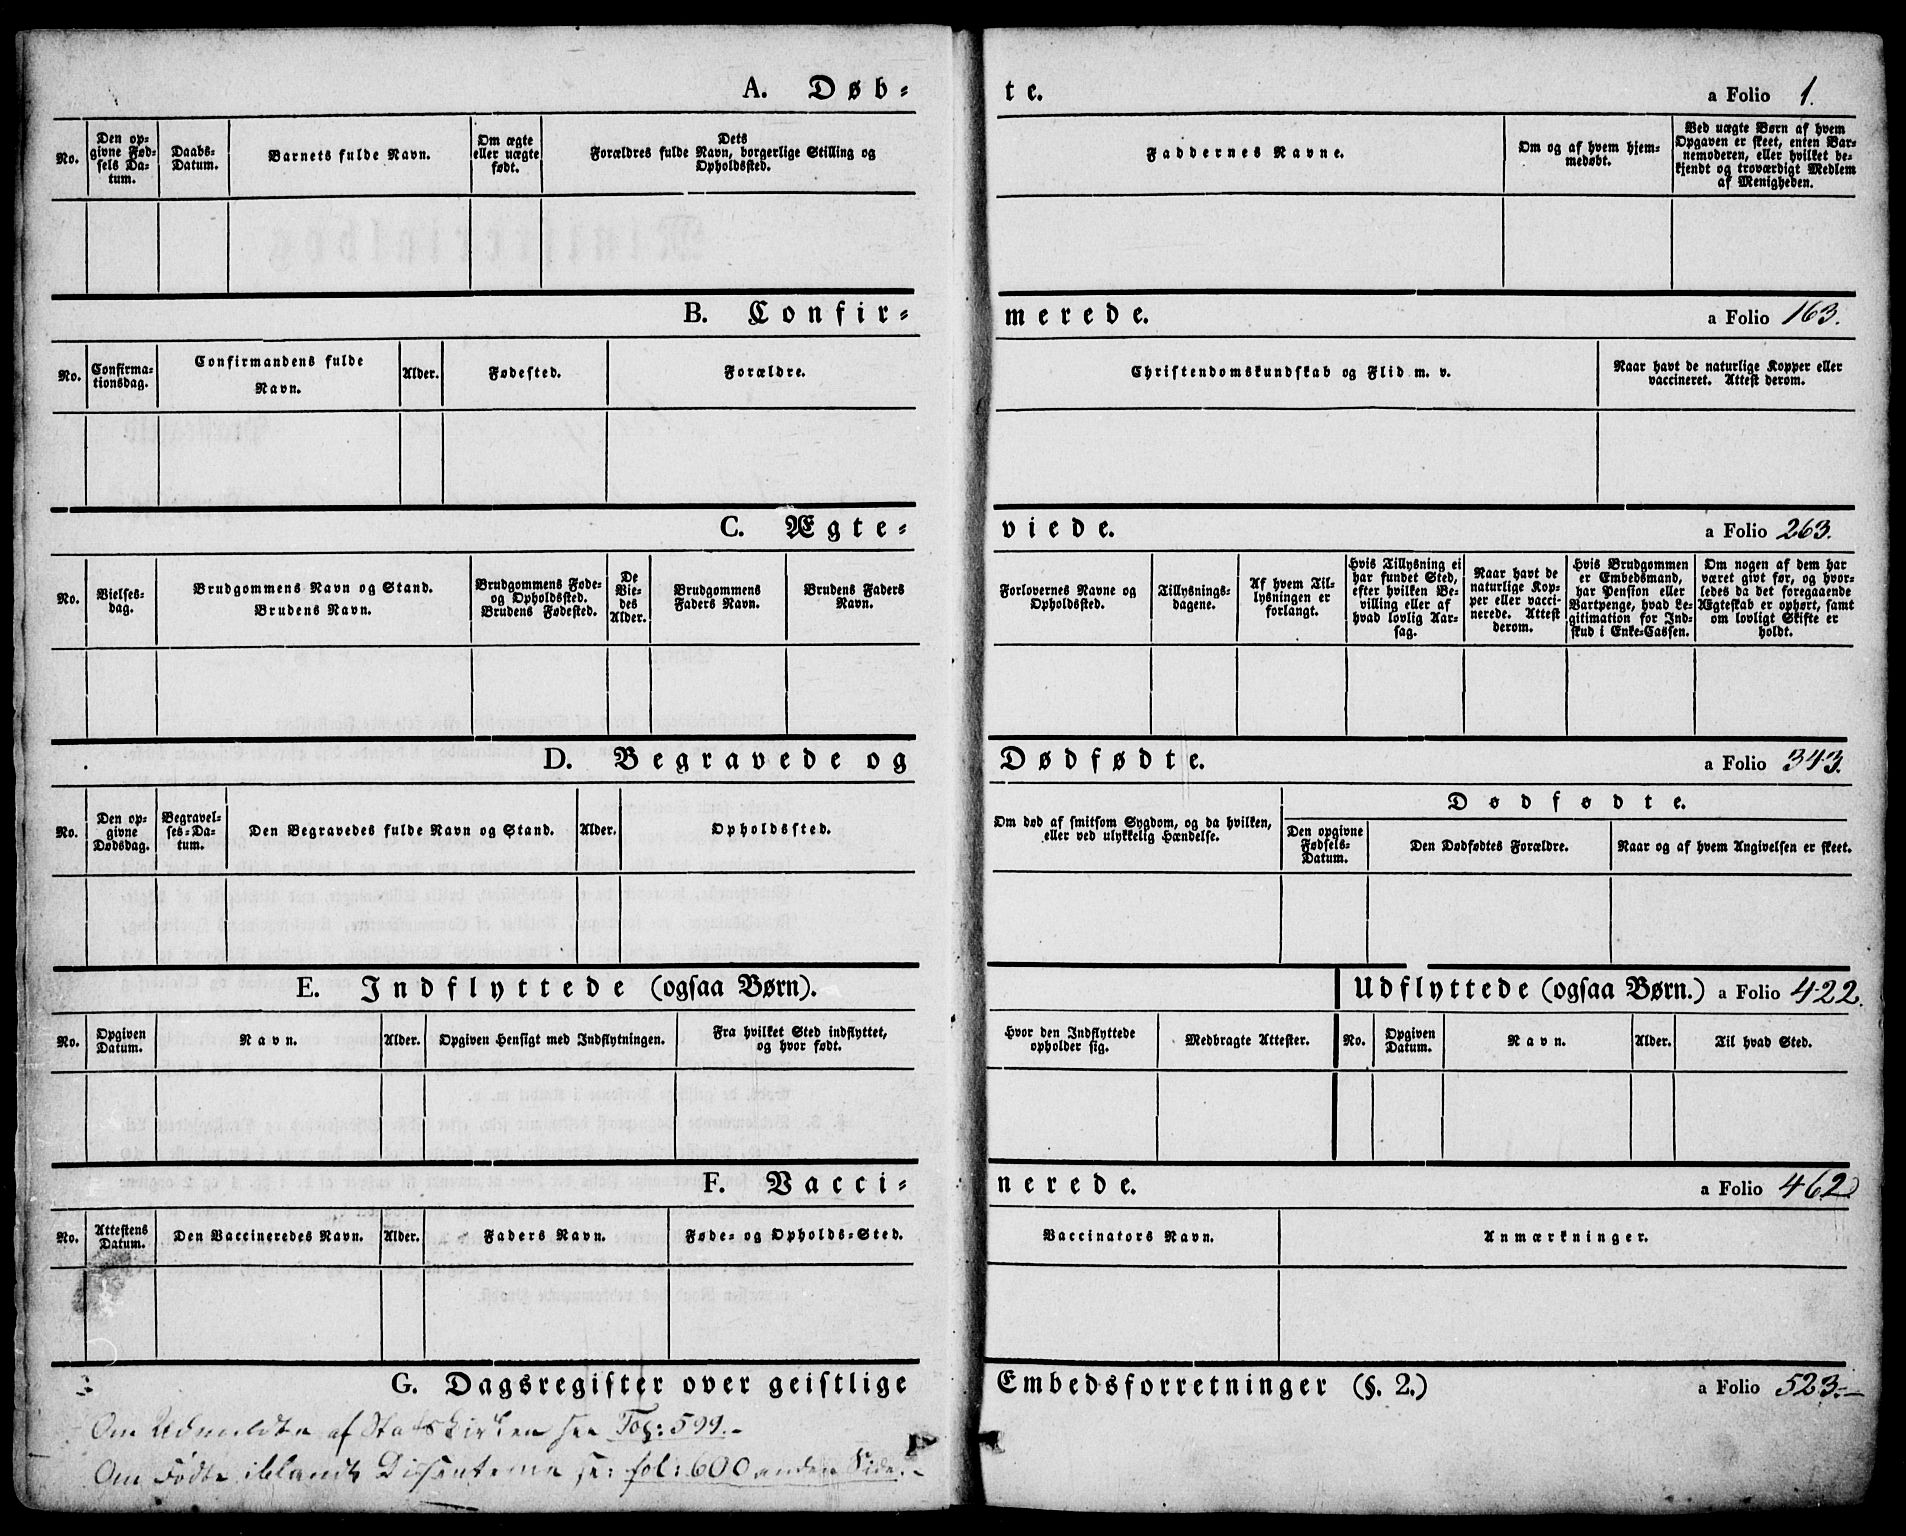 A. Døb-te. a Folio 1.
No.
Den op-
givne Fød-
sels Da-
tum.
Daabs-
Datum.
Barnets fulde Navn.
Om ægte
eller uægte
født.
Dets
Forældres fulde Navn, borgerlige Stilling og
Opholdssted.
Faddernes Navne.
Om og af hvem hjem-
medøbt.
Ved uægte Børn af hvem
Opgaven er skeet, enten Bar-
nemoderen, eller hvilket be-
kjendt og troværdigt Medlem
af Menigheden.
B. Confir-merede. a Folio 163.
No.
Confirma-
tionsdag.
Confirmandens fulde
Navn.
Alder.
Fødested.
Forældre.
Christendomskundskab og Flid m. v.
Naar havt de naturlige Kopper eller
vaccineret. Attest derom.
C. Ægte-viede. a Folio 263.
No.
Vielses-
dag.
Brudgommens Navn og Stand.
Brudens Navn.
Brudgommens Føde-
og Opholdssted.
Brudens Fødested.
De
Vie-
des
Alder.
Brudgommens
Faders Navn.
Brudens Faders
Navn.
Forlovernes Navne og
Opholdssted.
Tillysnings-
dagene.
Af hvem Til-
lysningen er
forlangt.
Hvis Tillysning ei
har fundet Sted,
efter hvilken Be-
villing eller af
hvad lovlig Aar-
sag.
Naar havt de
naturlige Kop-
per eller vacci-
nerede. Attest
derom.
Hvis Brudgommen
er Embedsmand,
har Pension eller
Vartpenge, hvad Le-
gitimation for Ind-
skud i Enke-Cassen.
Om nogen af dem har
været givt før, og hvor-
ledes da det foregaaende
Ægteskab er ophørt, samt
om lovligt Skifte er
holdt.
D. Begravede og Dødfødte. a Folio 343.
No.
Den op-
givne
Dødsdag.
Begravel-
ses-Da-
tum.
Den Begravedes fulde Navn og Stand.
Alder.
Opholdssted.
Om død af smitsom Sygdom, og da hvilken,
eller ved ulykkelig Hændelse.
Dødfødte.
Den opgivne
Fødsels-
Datum.
Den Dødfødtes Forældre.
Naar og af hvem Angivelsen er skeet.
E. Indflyttede (ogsaa Børn). Udflyttede (ogsaa Børn.) a Folio 422.
No.
Opgiven
Datum.
Navn.
Alder.
Opgiven Hensigt med Indflytningen.
Fra hvilket Sted indflyttet,
og hvor født.
Hvor den Indflyttede
opholder sig.
Medbragte Attester.
No.
Opgiven
Datum.
Navn.
Alder.
Til hvad Sted.
F. Vacci-nerede. a Folio 462
No.
Attestens
Datum.
Den Vaccineredes Navn.
Alder.
Faders Navn.
Føde- og Opholds-Sted.
Vaccinators Navn.
Anmærkninger.
G. Dagsregister over geistlige Embedsforretninger (§. 2.) a Folio 523.
Om Udmeldte af Statskirken see Fol: 599.-
Om Fødte iblandt Dissenterne se: fol: 600 anden Side.-